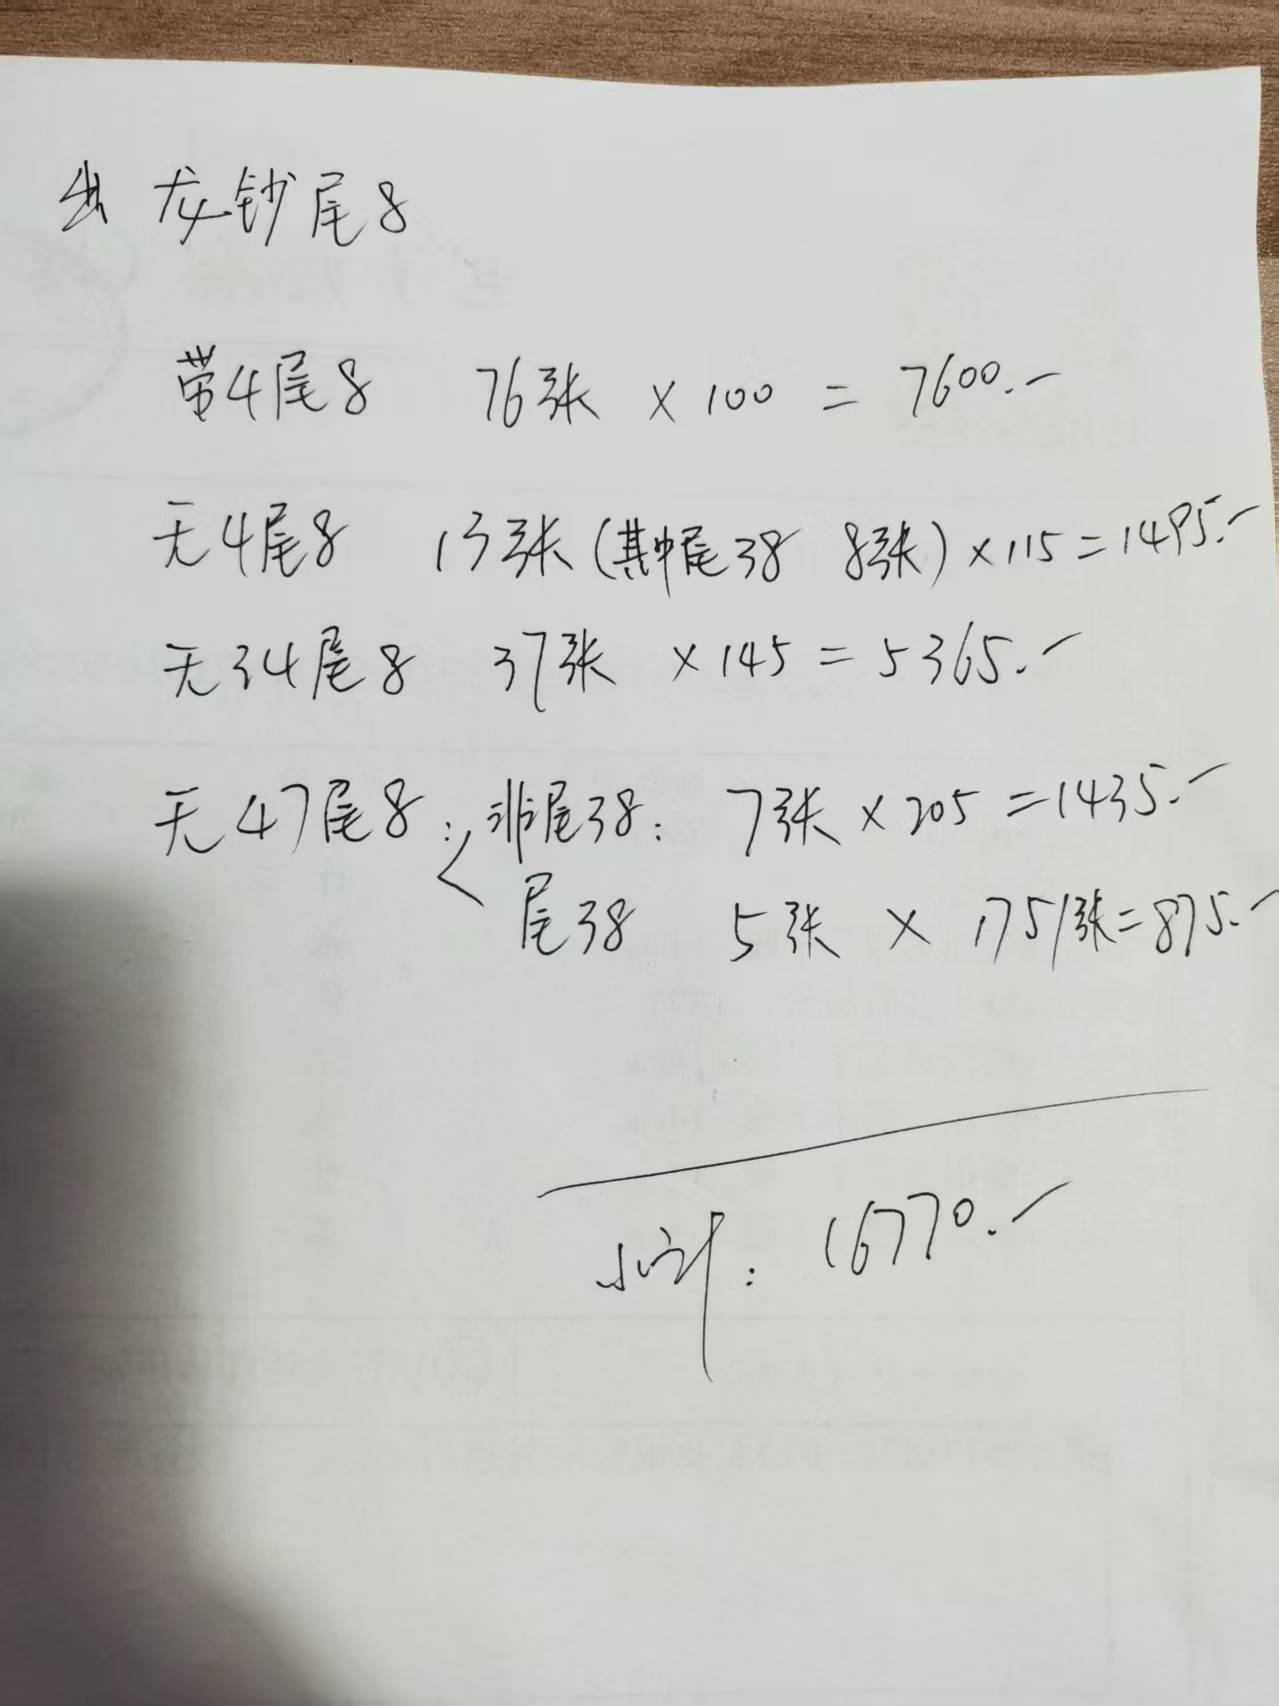 出 龙钞尾8
带4尾8 76张 × 100 = 7600.-
无4尾8 13张(其中尾38 8张)×115=1495.-
无34尾8 37张 ×145=5365.-
无47尾8: 非尾38: 7张×205=1435.-
尾38 5张 × 175/张=875.-
小计: 16770.-